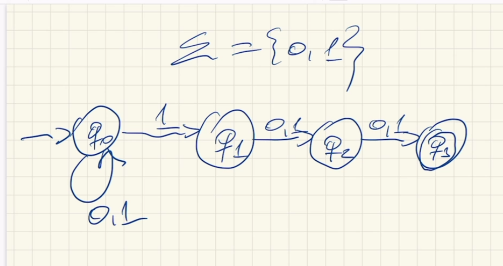 Σ = {0, 1}
q0 1 q1 0,1 q2 0,1 q3
0,1